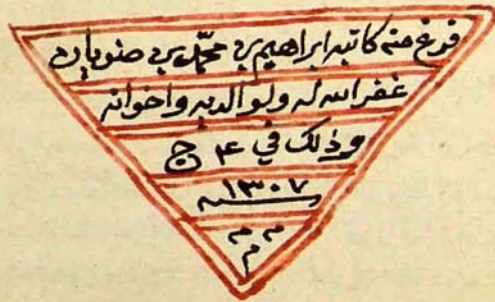 فرغ منه كاتبه ابراهيم بن محمد بن صنوبان
غفر الله له ولوالديه واخوانه
وذلك في ٤ ج
سنة ١٣٠٧
م م م